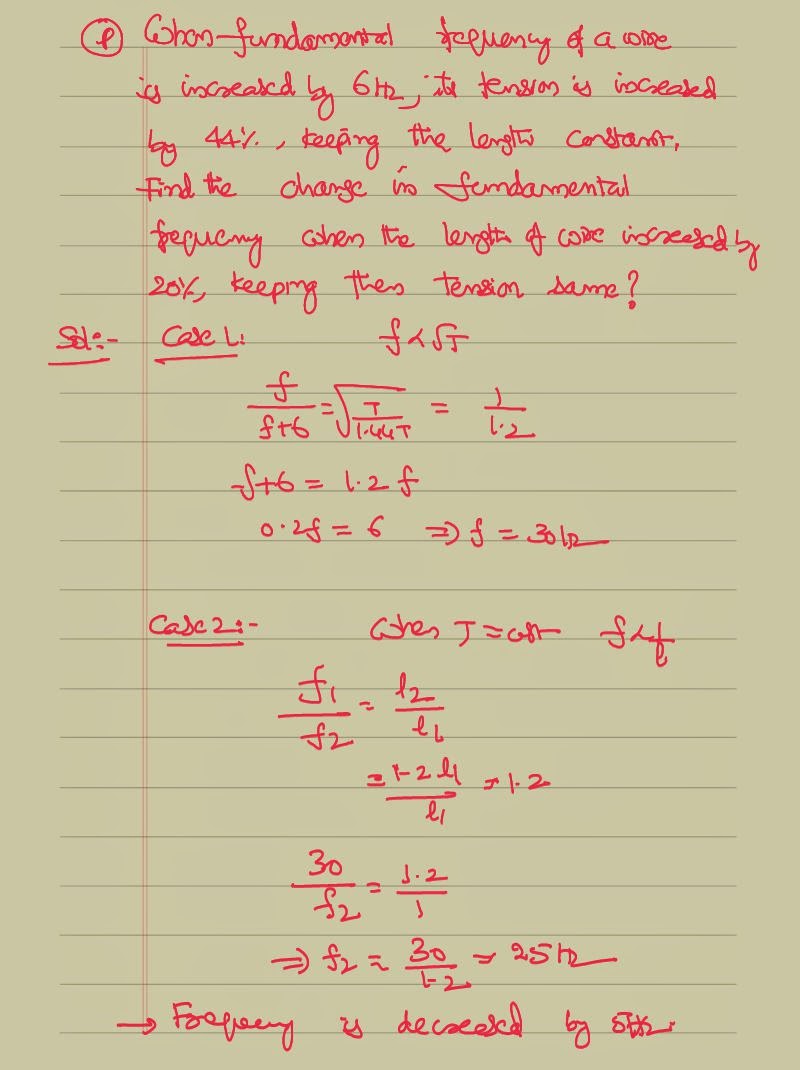 (P) When fundamental frequency of a wire
is increased by 6Hz, its tension is increased
by 44%, keeping the length constant,
Find the change in fundamental
frequency when the length of wire increased by
20%, keeping then tension same?
Sol:- Case 1:  f ∝ √T
f/(f+6) = √(T/1.44T) = 1/1.2
f+6 = 1.2 f
0.2f = 6 ⇒ f = 30Hz
Case 2:-  When T = const  f ∝ 1/l
f₁/f₂ = l₂/l₁
= 1.2 l₁/l₁ = 1.2
30/f₂ = 1.2/1
⇒ f₂ = 30/1.2 = 25Hz
→ Frequency is decreased by 5Hz.